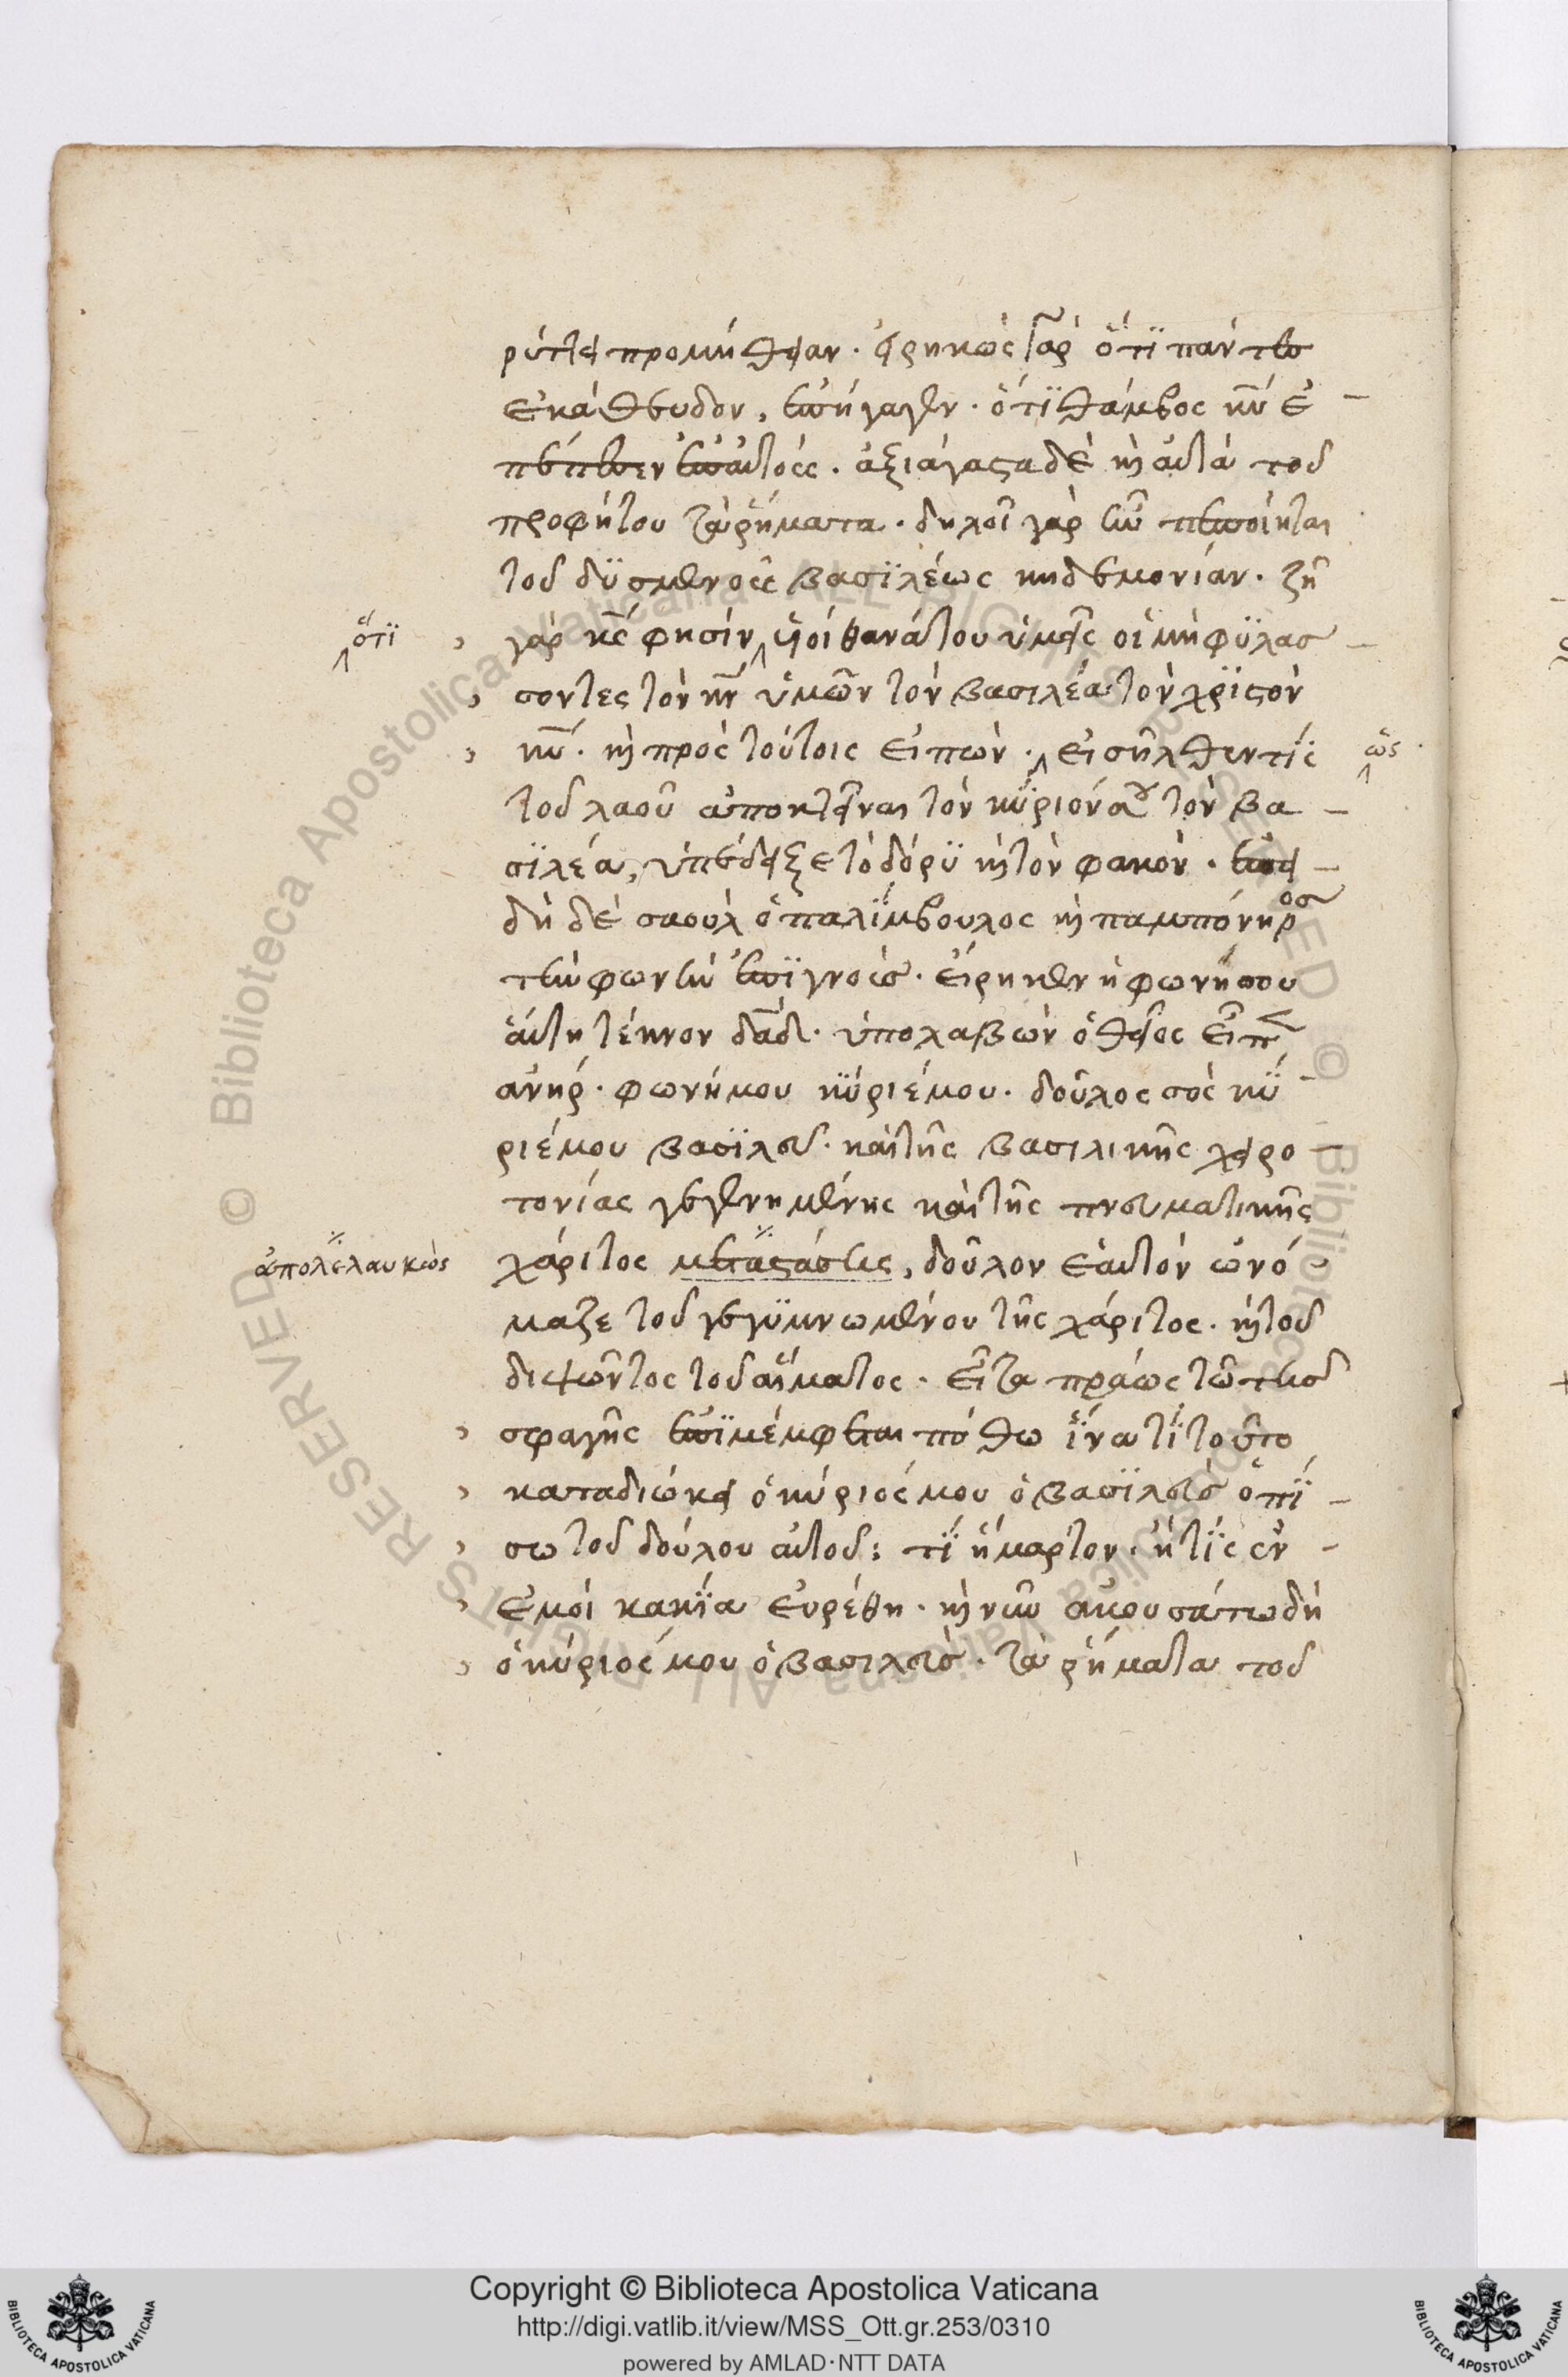 ρύττει προμήθειαν. εἰρηκὼς γὰρ ὅτι πάντες
ἐκάθευδον, ἐπήγαγεν. ὅτι θάμβος κυ ἐ
πέπεσεν ἐπ' αὐτούς. ἀξιάγαστα δὲ κ αὐτὰ τοῦ
προφήτου τὰ ῥήματα. δηλοῖ γὰρ ἣν πεποίηται
τοῦ δυσμενοῦς βασιλέως κηδεμονίαν. ζῆ
ὅτι γὰρ κς φησίν, υἱοὶ θανάτου ὑμεῖς οἱ μὴ φυλάσ
σοντες τὸν κν ὑμῶν τὸν βασιλέα τὸν χριστὸν
κυ. κ πρὸς τούτοις εἰπών. εἰσῆλθεν τίς ὡς
τοῦ λαοῦ ἀποκτεῖναι τὸν κύριόν σου τὸν βα
σιλέα, ὑπέδειξε τὸ δόρυ κ τὸν φακόν. ἐπει
δὴ δὲ σαοὺλ ὁ παλίμβουλος κ παμπόνηρος
τὴν φωνὴν ἐπιγνούς. εἴρηκεν ἡ φωνή σου
αὕτη τέκνον δαδ. ὑπολαβὼν ὁ θεῖος εἶπεν
ἀνήρ. φωνή μου κύριέ μου. δοῦλος σὸς κύ
ριέ μου βασιλεῦ. καὶ τῆς βασιλικῆς χειρο
τονίας γεγενημένης καὶ τῆς πνευματικῆς
ἀπολέλαυκὼς χάριτος μεταστάσεις, δοῦλον ἑαυτὸν ὠνό
μαζε τοῦ γεγυμνωμένου τῆς χάριτος. κ τοῦ
διψῶντος τοῦ αἵματος. εἶτα πράως τῶ τῆς
σφαγῆς ἐπιμέμφεται πόθω ἵνα τί τοῦτο
καταδιώκει ὁ κύριός μου ὁ βασιλεὺς ὀπί
σω τοῦ δούλου αὐτοῦ; τί ἥμαρτον. ἢ τίς ἐν
ἐμοὶ κακία εὑρέθη. κ νῦν ἀκουσάτω δὴ
ὁ κύριός μου ὁ βασιλεύς. τὰ ῥήματα τοῦ
Copyright © Biblioteca Apostolica Vaticana
http://digi.vatlib.it/view/MSS_Ott.gr.253/0310
powered by AMLAD·NTT DATA